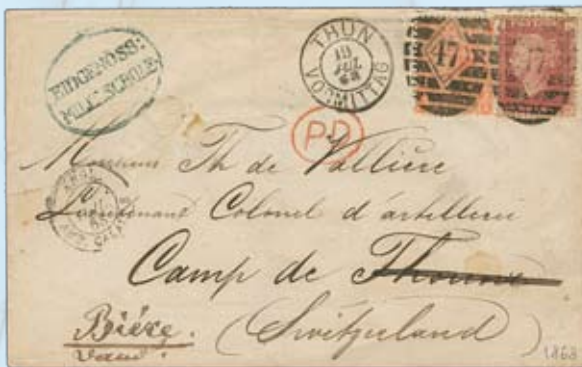 EIDGENÖSS:
MILIT. SCHULE.
THUN
VORMITTAG
47
PD
Monsieur Th de Vallière
Lieutenant Colonel d'artillerie
Camp de Thoune
Bière. (Switzerland)
Vaud.
1868